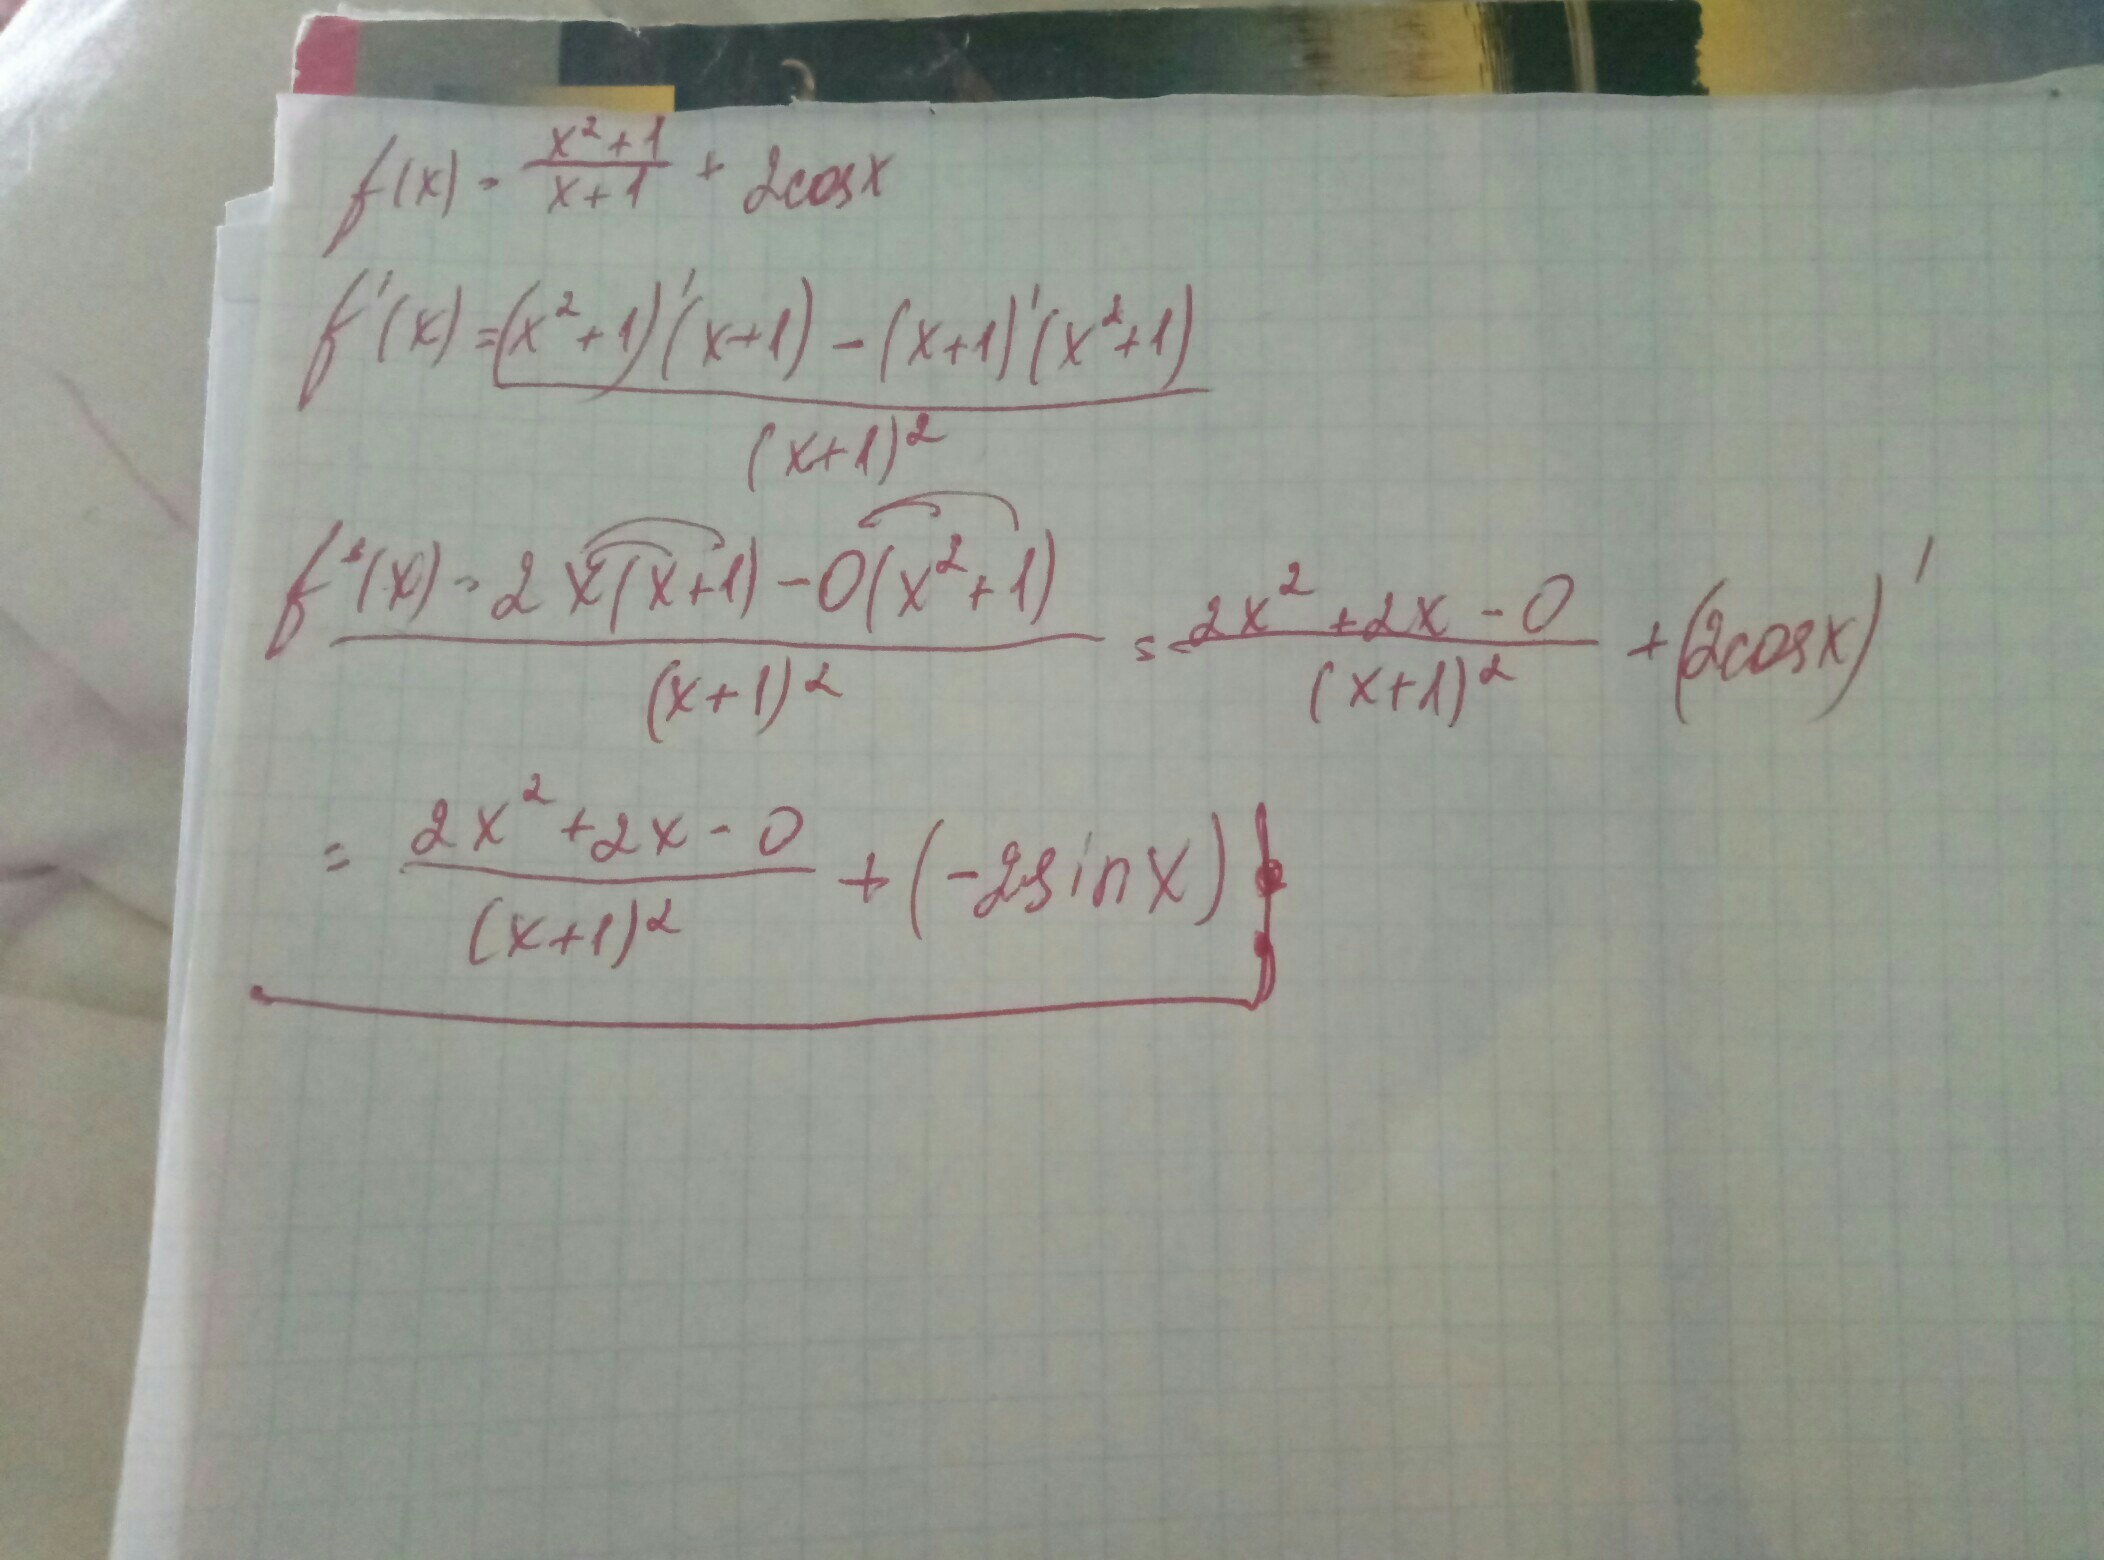 f(x) = (x²+1)/(x+1) + 2cosx
f'(x) = ((x²+1)'(x+1) - (x+1)'(x²+1))/(x+1)²
f'(x) = (2x(x+1) - 0(x²+1))/(x+1)² = (2x²+2x-0)/(x+1)² + (2cosx)'
= (2x²+2x-0)/(x+1)² + (-2sinx)